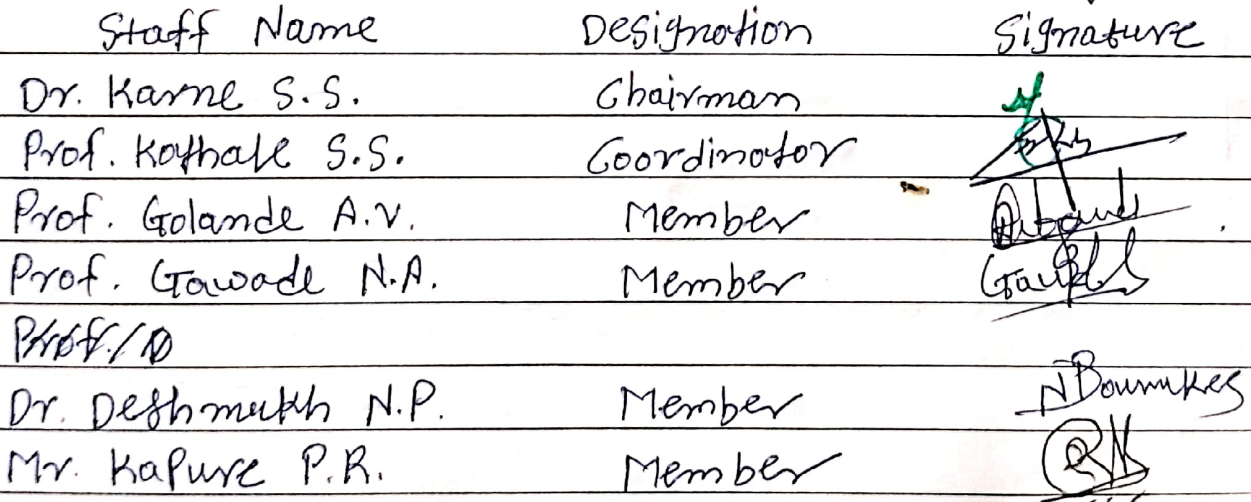 Staff Name Designation Signature
Dr. Karne S.S. Chairman
Prof. Kothale S.S. Coordinator
Prof. Golande A.V. Member
Prof. Gawade N.A. Member
Prof./D
Dr. Deshmukh N.P. Member
Mr. Kapure P.R. Member